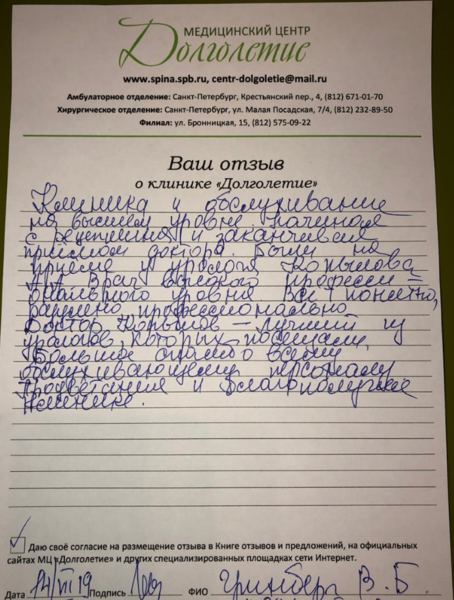 МЕДИЦИНСКИЙ ЦЕНТР
Долголетие
www.spina.spb.ru, centr-dolgoletie@mail.ru
Амбулаторное отделение: Санкт-Петербург, Крестьянский пер., 4, (812) 671-01-70
Хирургическое отделение: Санкт-Петербург, ул. Малая Посадская, 7/4, (812) 232-89-50
Филиал: ул. Бронницкая, 15, (812) 575-09-22
Ваш отзыв
о клинике «Долголетие»
Клиника и обслуживание
на высшем уровне. Начиная
с рецепшена и заканчивая
приёмом доктора. Были на
приёме у уролога Копылова
Врач высокого професси-
онального уровня. Всё понятно,
разумно, профессионально.
Доктор Копылов – лучший из
урологов, которых посещали.
Большое спасибо всему
обслуживающему персоналу
Процветания и благополучия
клинике.
✓ Даю своё согласие на размещение отзыва в Книге отзывов и предложений, на официальных
сайтах МЦ «Долголетие» и других специализированных площадках сети Интернет.
Дата 14/VII 19 Подпись ФИО Гринберг В. Б.